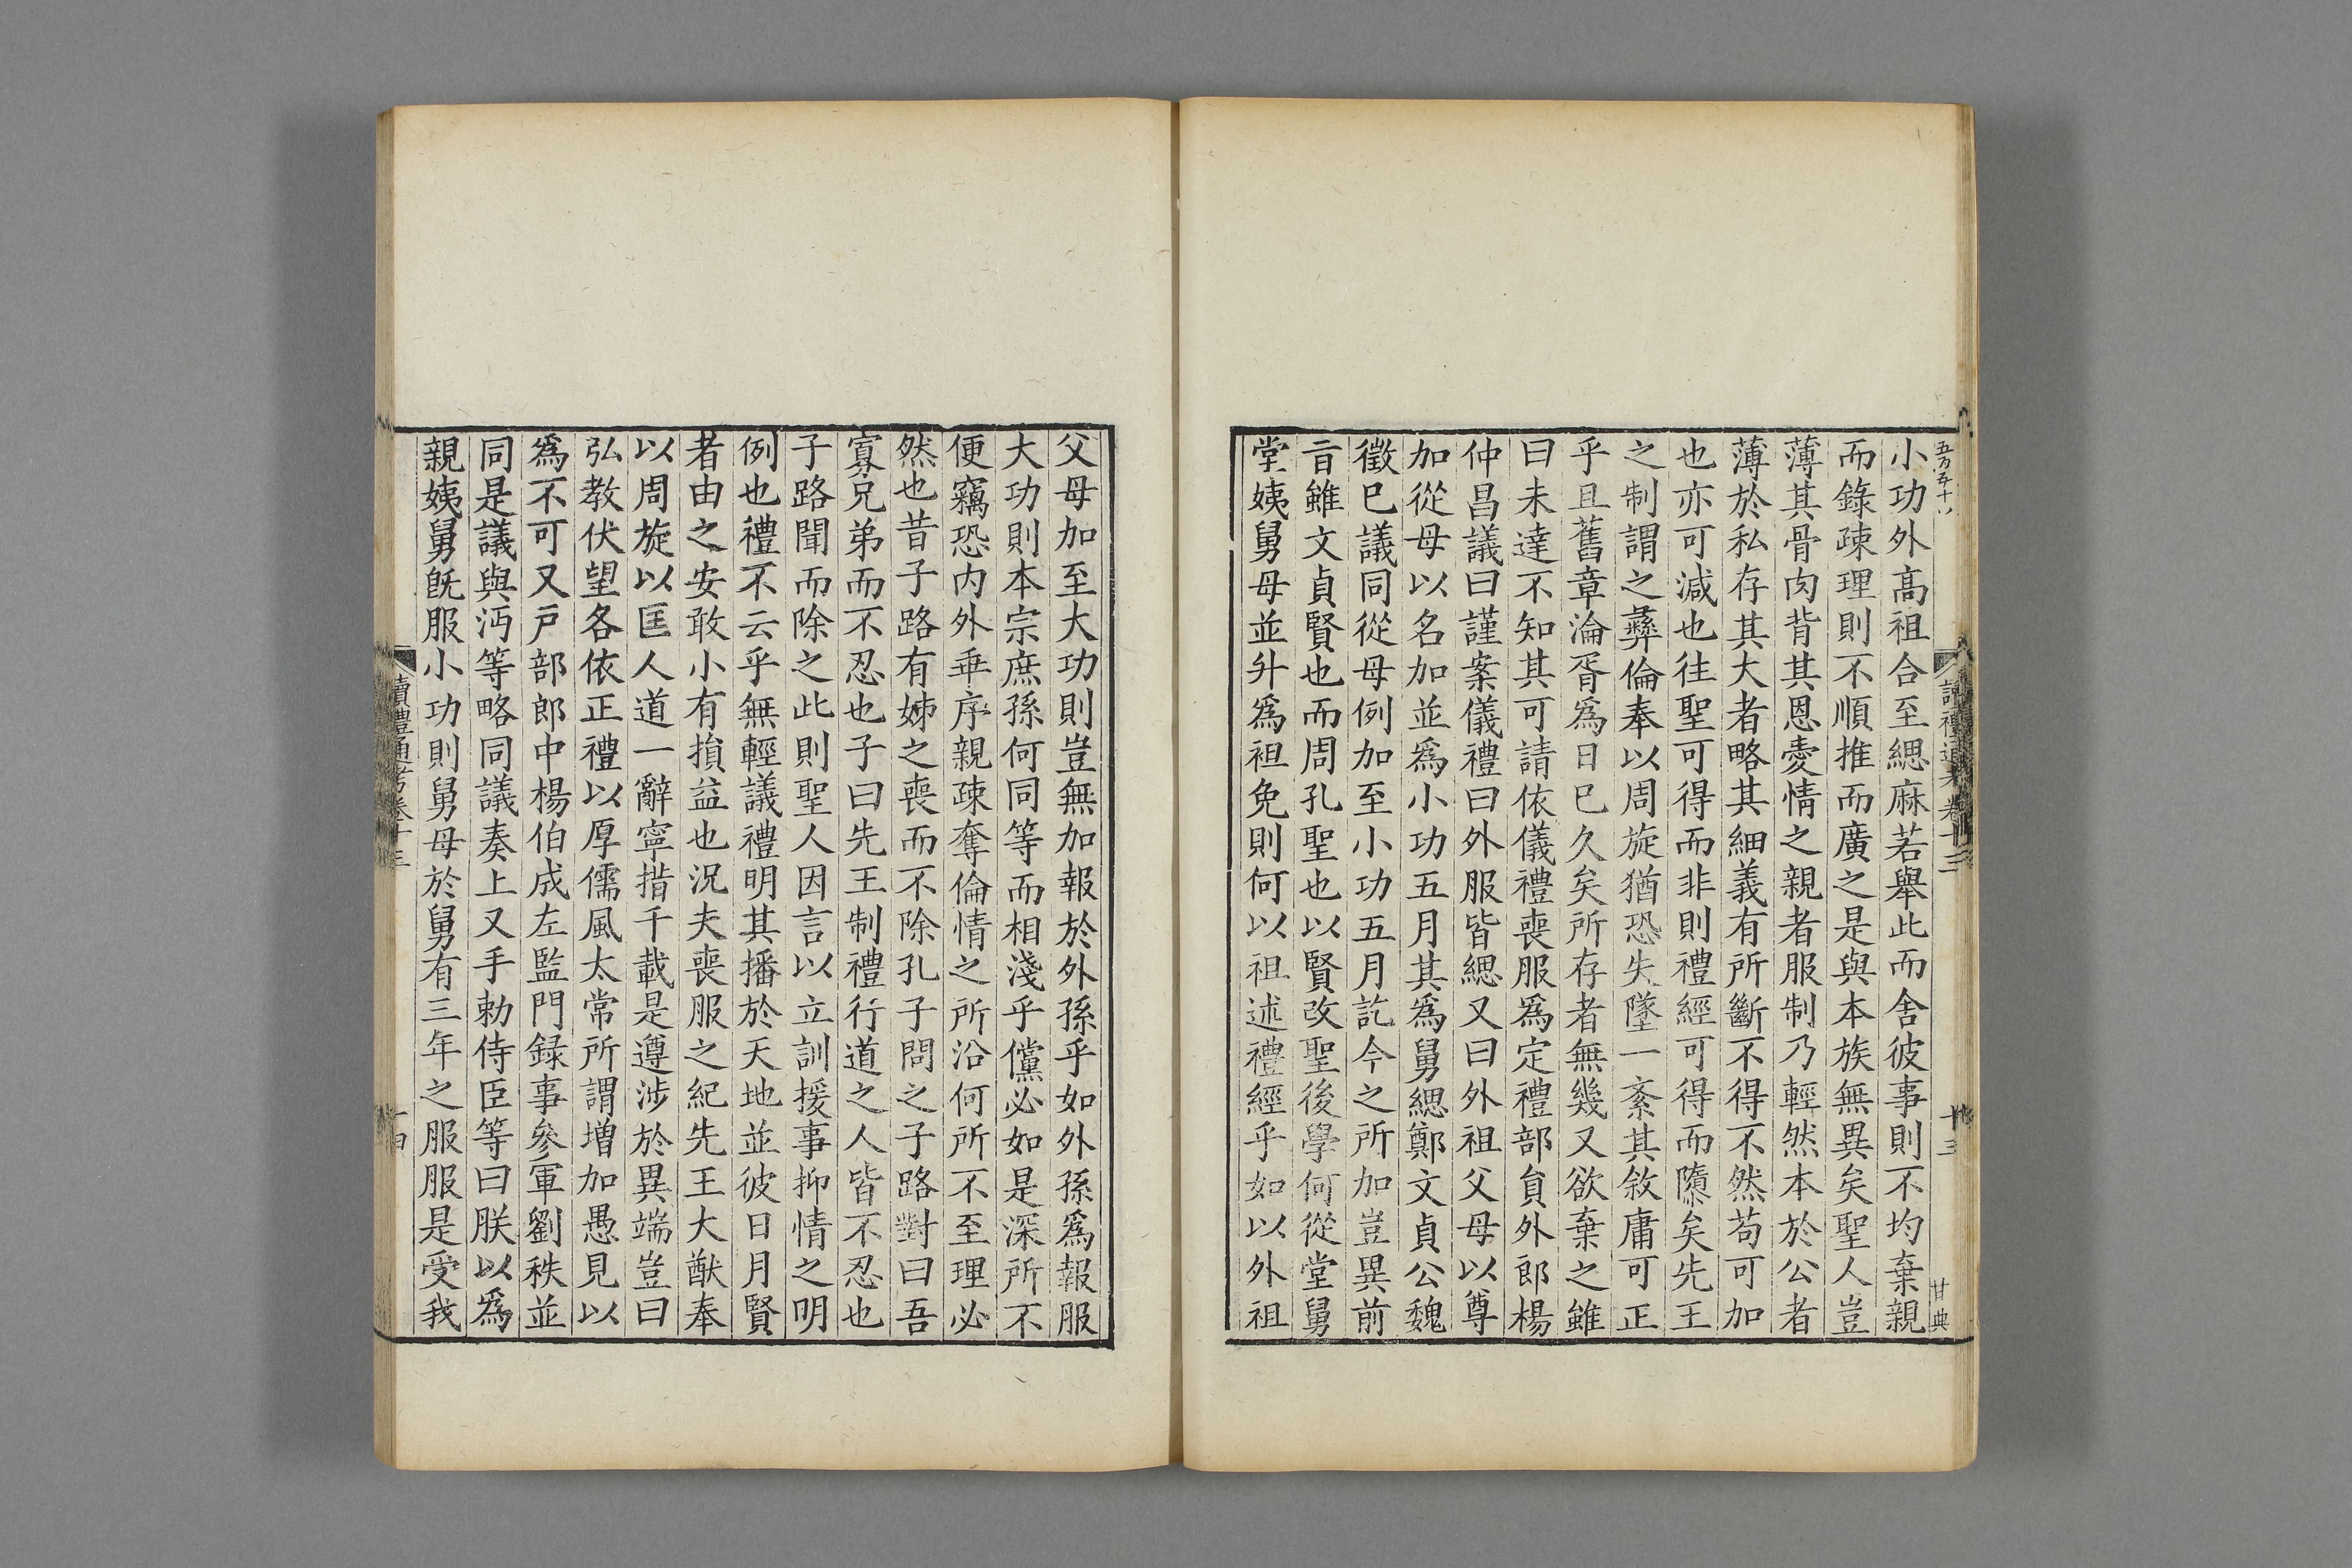 小功外高祖合至緦麻若舉此而舍彼事則不均棄親
而錄疎理則不順推而廣之是與本族無異矣聖人豈
薄其骨肉背其恩愛情之親者服制乃輕然本於公者
薄於私存其大者略其細義有所斷不得不然苟可加
也亦可減也往聖可得而非則禮經可得而隳矣先王
之制謂之彞倫奉以周旋猶恐失墜一紊其敘庸可正
乎且舊章淪胥爲日已久矣所存者無幾又欲棄之雖
曰未達不知其可請依儀禮喪服爲定禮部員外郎楊
仲昌議曰謹案儀禮曰外服皆緦又曰外祖父母以尊
加從母以名加並爲小功五月其爲舅緦鄭文貞公魏
徵已議同從母例加至小功五月訖今之所加豈異前
旨雖文貞賢也而周孔聖也以賢改聖後學何從堂舅
堂姨舅母並升爲袒免則何以祖述禮經乎如以外祖
父母加至大功則豈無加報於外孫乎如外孫爲報服
大功則本宗庶孫何同等而相淺乎儻必如是深所不
便竊恐内外乖序親疎奪倫情之所沿何所不至理必
然也昔子路有姊之喪而不除孔子問之子路對曰吾
寡兄弟而不忍也子曰先王制禮行道之人皆不忍也
子路聞而除之此則聖人因言以立訓援事抑情之明
例也禮不云乎無輕議禮明其播於天地並彼日月賢
者由之安敢小有損益也況夫喪服之紀先王大猷奉
以周旋以匡人道一辭寧措千載是遵涉於異端豈曰
弘教伏望各依正禮以厚儒風太常所謂增加愚見以
爲不可又戸部郎中楊伯成左監門録事參軍劉秩並
同是議與沔等略同議奏上又手勅侍臣等曰朕以爲
親姨舅旣服小功則舅母於舅有三年之服服是受我
讀禮通考卷十三